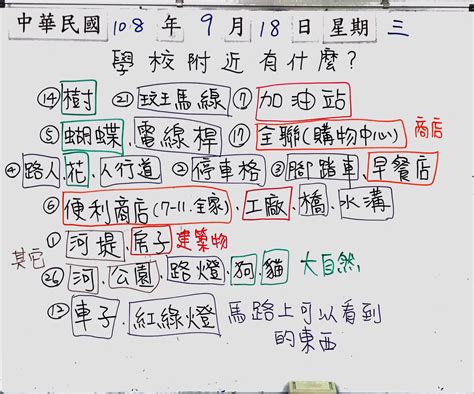 中華民國 108 年 9 月 18 日 星期 三
學校附近有什麼?
⑭樹 ㉑斑馬線 ⑦加油站
⑤蝴蝶、電線桿 ⑰全聯(購物中心) 商店
④路人、花、人行道 ②停車格 ③腳踏車、早餐店
⑥便利商店(7-11.全家)、工廠、橋、水溝
①河堤、房子 建築物
其它
㉖河、公園、路燈、狗、貓 大自然
⑫車子、紅綠燈 馬路上可以看到
的東西